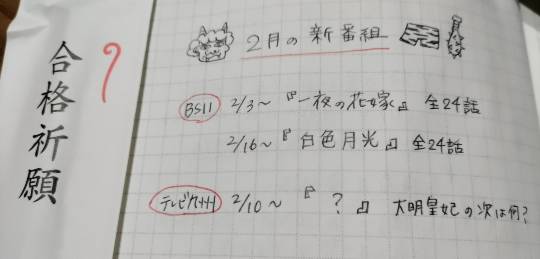 合格祈願
2月の新番組
BS11 2/3～『一夜の花嫁』 全24話
2/16～『白色月光』 全24話
テレビ九州 2/10～『?』 大明皇妃の次は何?